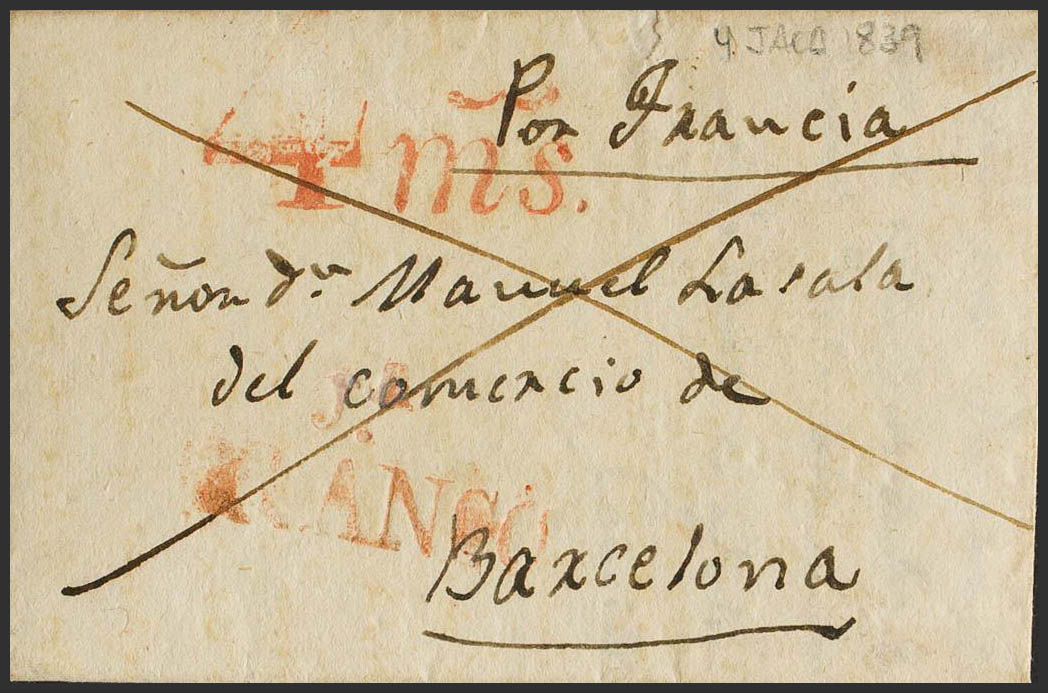 4 JACA 1839
Por Francia
4 ms.
Señor dn Manuel Lasala
del comercio de
FRANCO
Barcelona